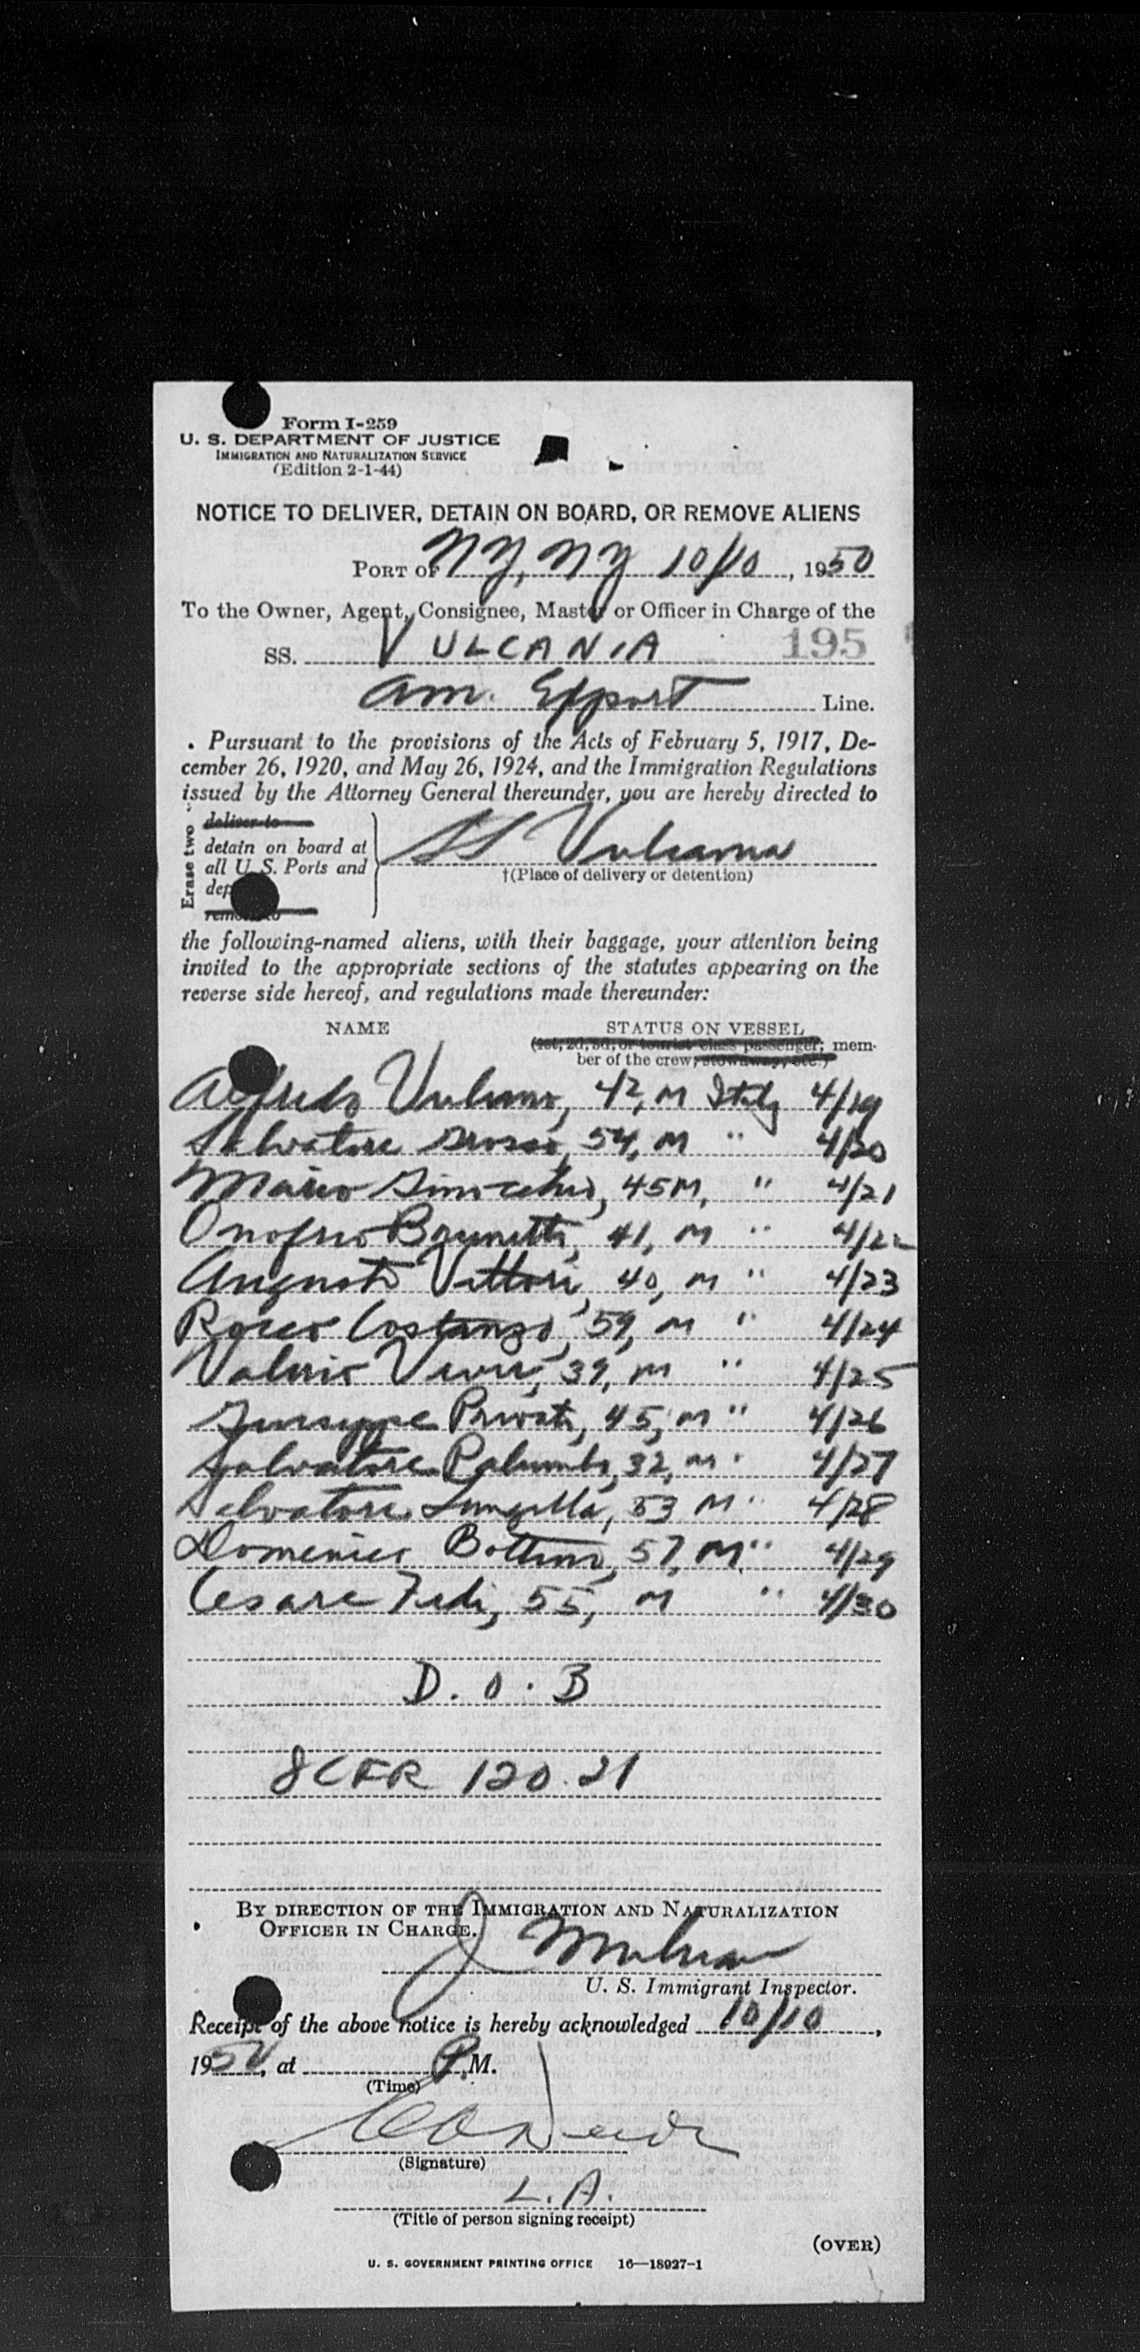 Form I-259
U. S. DEPARTMENT OF JUSTICE
IMMIGRATION AND NATURALIZATION SERVICE
(Edition 2-1-44)
NOTICE TO DELIVER, DETAIN ON BOARD, OR REMOVE ALIENS
PORT OF NY, NY 10/10, 1950
To the Owner, Agent, Consignee, Master or Officer in Charge of the
SS. VULCANIA 195
Am. Export Line.
Pursuant to the provisions of the Acts of February 5, 1917, De-
cember 26, 1920, and May 26, 1924, and the Immigration Regulations
issued by the Attorney General thereunder, you are hereby directed to
Erase two
deliver to
detain on board at
all U. S. Ports and
dep
remove to
SS Vulcania
†(Place of delivery or detention)
the following-named aliens, with their baggage, your attention being
invited to the appropriate sections of the statutes appearing on the
reverse side hereof, and regulations made thereunder:
NAME STATUS ON VESSEL
(1st, 2d, 3d, or tourist class passenger; mem-
ber of the crew; stowaway, etc.)
Alfredo 42, M Italy 4/19
Salvatore Grosso, 54, M " 4/20
Mario 45 M, " 4/21
Onofrio Brunetti, 41, M " 4/22
Augusto Vittori, 40, M " 4/23
Rocco Costanzo, 59, M " 4/24
Valerio 39, M " 4/25
Giuseppe 45, M " 4/26
Salvatore Palumbo, 32, M " 4/27
Salvatore 53 M " 4/28
Domenico Bottino, 57, M " 4/29
Cesare Fedi, 55, M " 4/30
D. O. B
8 CFR 120.21
BY DIRECTION OF THE IMMIGRATION AND NATURALIZATION
OFFICER IN CHARGE.
J
U. S. Immigrant Inspector.
Receipt of the above notice is hereby acknowledged 10/10,
1950, at P.M.
(Time)
(Signature)
L. A.
(Title of person signing receipt)
(OVER)
U. S. GOVERNMENT PRINTING OFFICE 16—18927-1